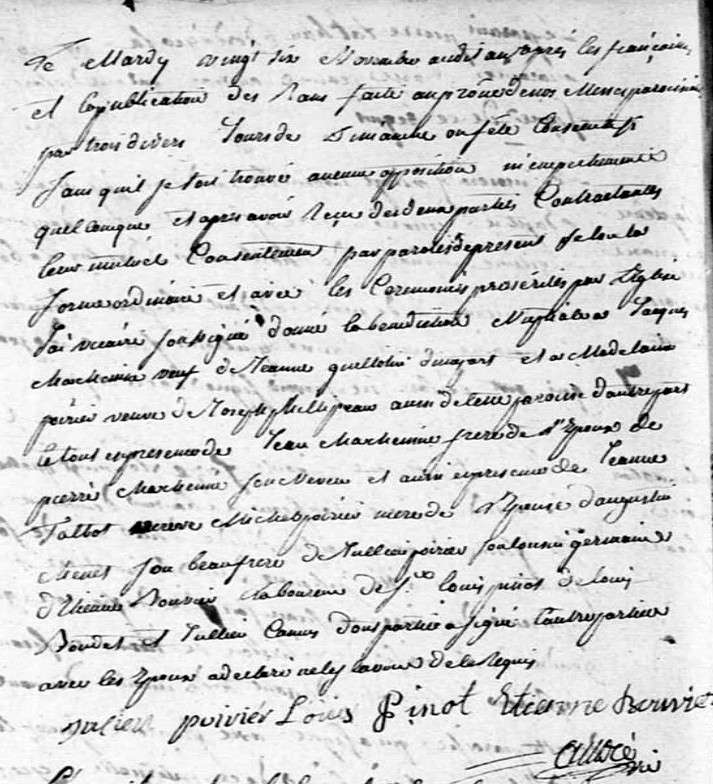 Le Mardy vingt six Novembre audit an après les fiançailles
et la publication des Bans faite au prône de nos Messes paroissiales
par trois divers jours de Dimanche ou fête Consecutifs
sans quil se soit trouvé aucune opposition ni empechement
quelconque et apres avoir Reçu des deux parties Contractantes
leur mutuel Consentement par paroles de present selon la
forme ordinaire et avec les Ceremonies prescrites par L'Eglise
J'ai vicaire soussigné donné la benediction Nuptiale a Jaques
veuf de Jeanne d'une part et a Madelaine
poirier veuve de Joseph aussi de cette paroisse d'autre part
le tout en presence de Jean frere de l'Epoux de
pierre son Neveu et aussi en presence de Jeanne
Talbot Michel poirier mere de l'Epouse d'augustin
son beaufrere de Jullien poirier son Cousin germain
d'Etienne Bouvier Laboureur de Sr louis pinot de louis
Boudet et Jullien dont partie a signé l'autre partie
avec les Epoux a declaré ne le savoir de ce Requis
Julien poirier Louis Pinot Etienne Bouvier